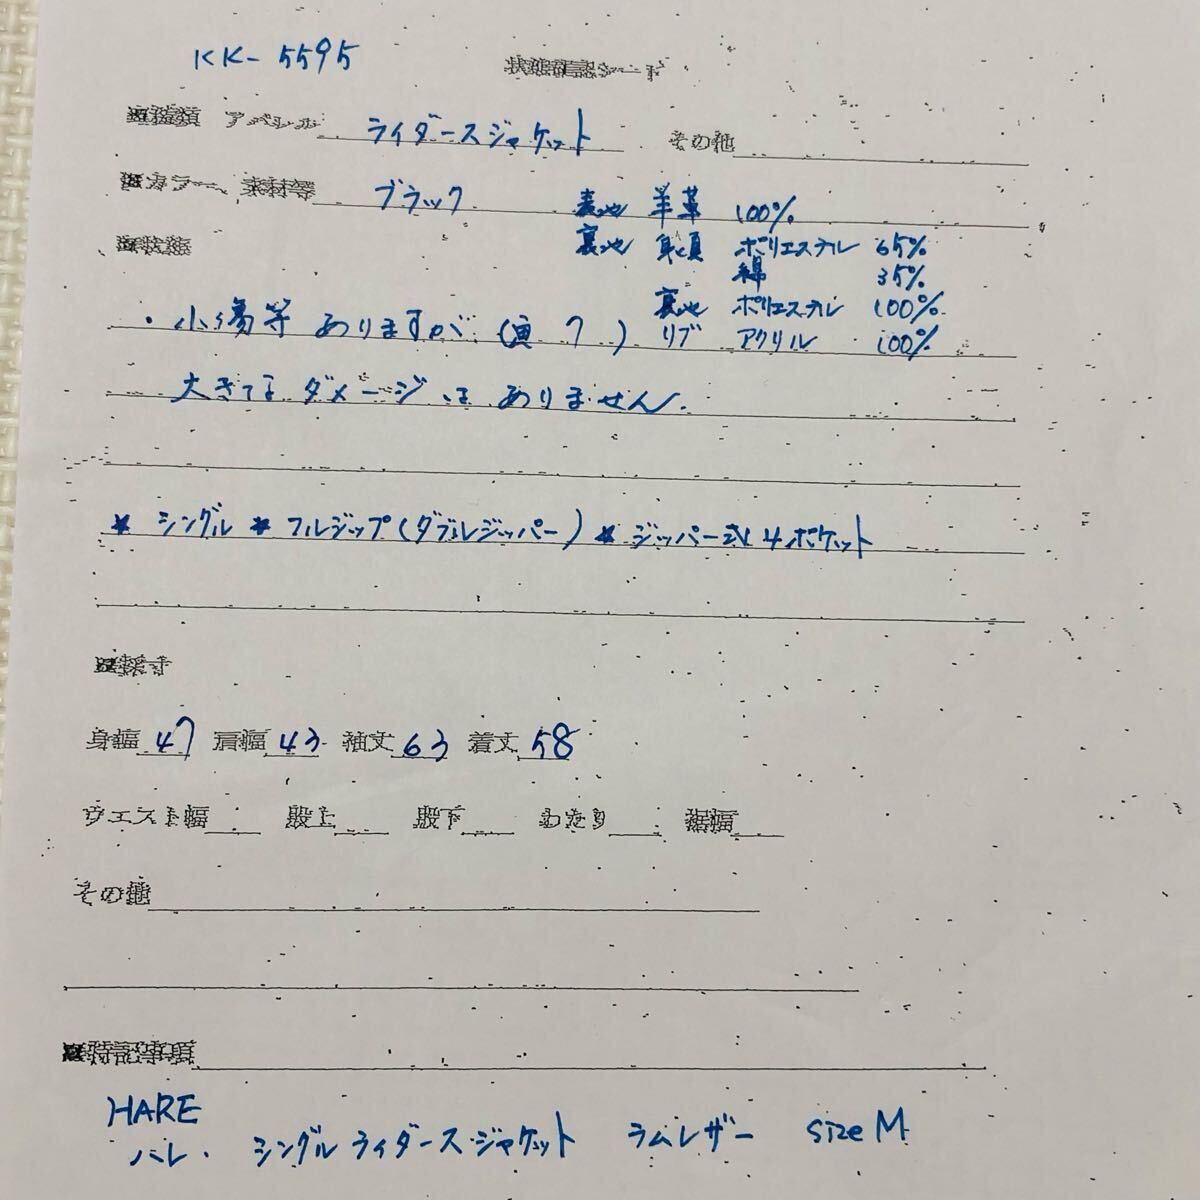 KK-5595
状態確認シート
※種類 アパレル ライダースジャケット その他
※カラー、素材等 ブラック 表地 羊革 100%
※状態 裏地 身頃 ポリエステル 65%
綿 35%
裏地 ポリエステル 100%
・小傷等ありますが(写) リブ アクリル 100%
大きなダメージはありません.
* シングル * フルジップ(ダブルジッパー) * ジッパー式4ポケット
※採寸
身幅 47 肩幅 43 袖丈 63 着丈 58
ウエスト幅 股上 股下 わたり 裾幅
その他
※特記事項
HARE
ハレ. シングルライダースジャケット ラムレザー size M